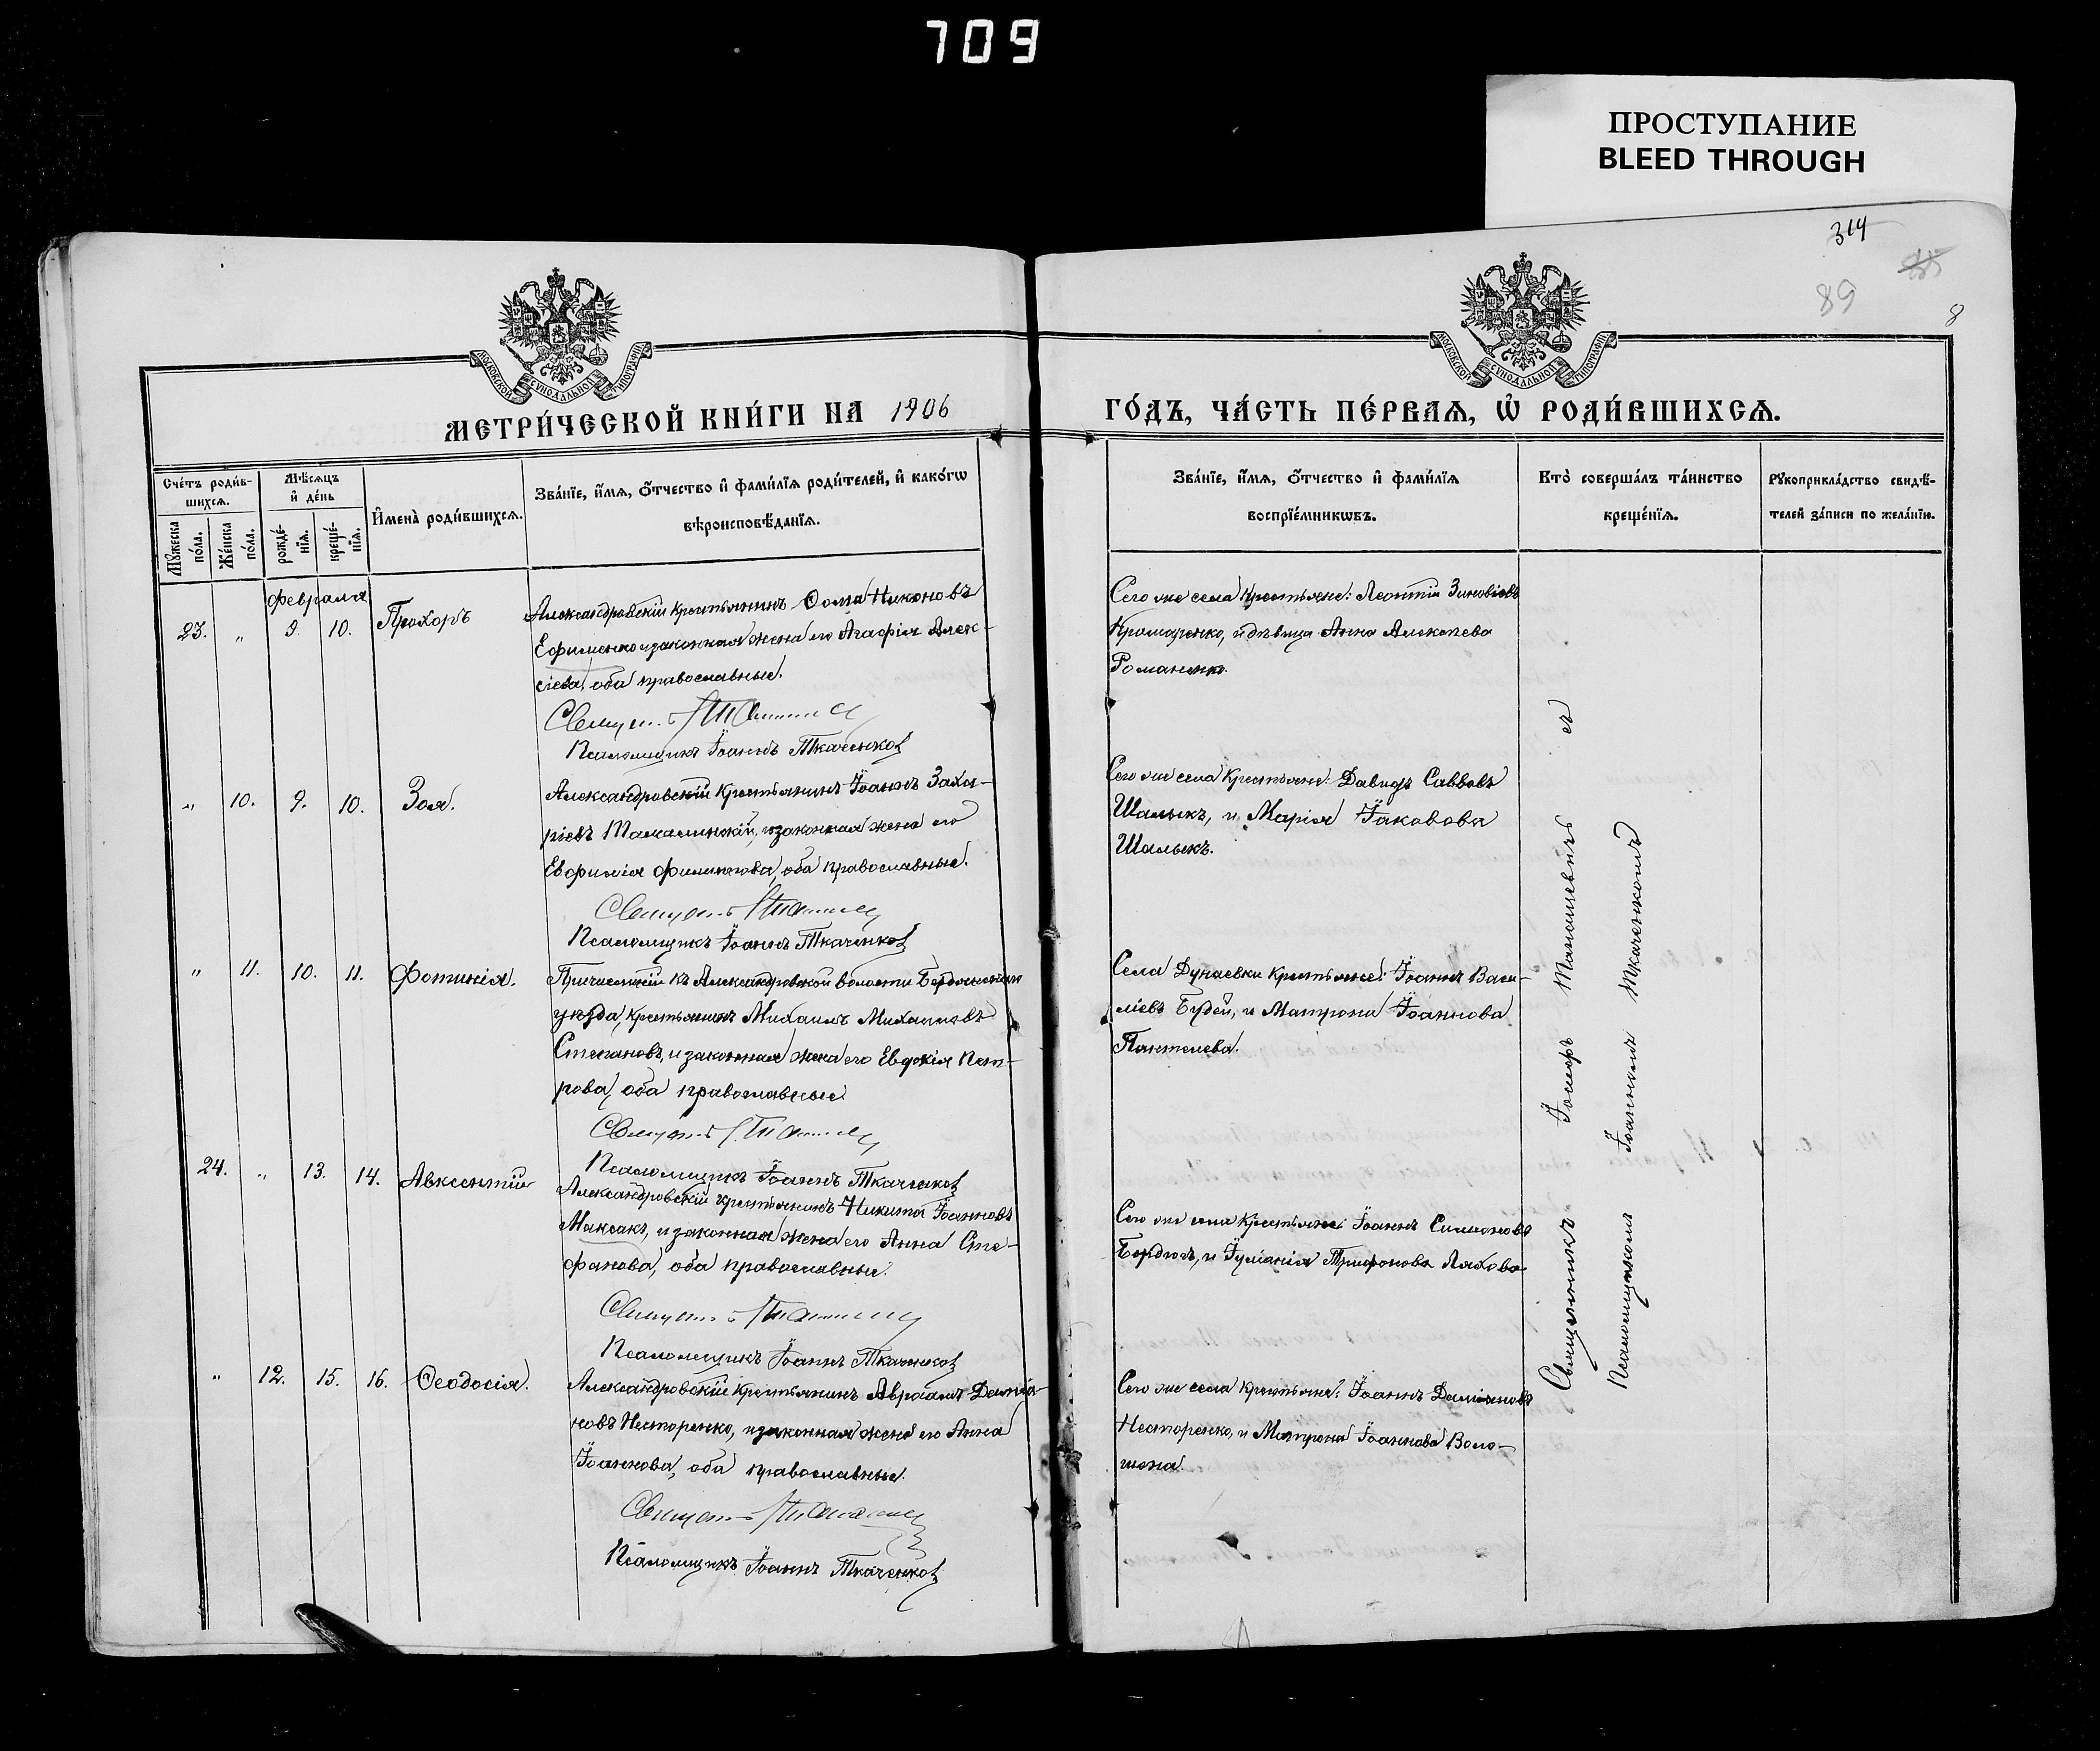 709
ПРОСТУПАНИЕ
BLEED THROUGH
314
89
8
МОСКОВСКОЙ СѴНОДАЛЬНОЙ ТИПОГРАФІИ
МОСКОВСКОЙ СѴНОДАЛЬНОЙ ТИПОГРАФІИ
МЕТРИ́ЧЕСКОЙ КНИ́ГИ НА 1906
ГО́ДЪ, ЧА́СТЬ ПЕ́РВАѦ, Ѡ҆ РОДИ́ВШИХСѦ.
Сче́тъ роди́в-
шихсѧ.
Мꙋжеска по́ла.
Же́нска по́ла.
Мѣ́сѧцъ и҆ де́нь
рожде́-
нїѧ.
креще́-
нїѧ.
И҆мена̀ роди́вшихсѧ.
Зва́нїе, и҆́мѧ, ѻ҆́тчество и҆ фами́лїѧ роди́телей, и҆ како́гѡ
вѣроисповѣ́данїѧ.
Зва́нїе, и҆́мѧ, ѻ҆́тчество и҆ фами́лїѧ
воспрїе́мникѡвъ.
Кто̀ соверша́лъ та́инство
креще́нїѧ.
Рꙋкоприкла́дство свидѣ́-
телей за́писи по жела́нїю.
Февраля
23. „ 9. 10. Прохоръ
Александровскій крестьянинъ Ѳома Никоновъ
Ефименко и законная жена его Агафія Алек-
сіева, оба православные.
Псаломщикъ Іоаннъ Ткаченко
Сего же села крестьяне: Леонтій Зиновіевъ
Крамаренко, и дѣвица Анна Алексѣева
Романенко.
„ 10. 9. 10. Зоя.
Александровскій крестьянинъ Іоаннъ Заха-
ріевъ Тамалинскій, и законная жена его
Евфимія Филиппова, оба православные.
Псаломщикъ Іоаннъ Ткаченко
Сего же села крестьяне: Давидъ Саввовъ
Шалыкъ, и Марія Іаковова
Шалыкъ.
„ 11. 10. 11. Фотинія.
Причисленный къ Александровской волости Бердянскаго
уѣзда, крестьянинъ Михаилъ Михаиловъ
Степановъ, и законная жена его Евдокія Пет-
рова, оба православные
Псаломщикъ Іоаннъ Ткаченко
Села Дунаевки крестьяне: Іоаннъ Васи-
ліевъ Будей, и Матрона Іоаннова
Пантелева.
24. „ 13. 14. Авксентій
Александровскій крестьянинъ Никита Іоанновъ
Максакъ, и законная жена его Анна Сте-
фанова, оба православные.
Псаломщикъ Іоаннъ Ткаченко
Сего же села крестьяне: Іоаннъ Симеоновъ
Бердюгъ, и Іуліанія Трифонова Ляхова
„ 12. 15. 16. Ѳеодосія.
Александровскій крестьянинъ Авраамъ Даміа-
новъ Несторенко, и законная жена его Анна
Іоаннова, оба православные.
Псаломщикъ Іоаннъ Ткаченко
Сего же села крестьяне: Іоаннъ Даміановъ
Несторенко, и Матрона Іоаннова Воло-
шена.
Священникъ Іосифъ Таношевичъ съ
Псаломщикомъ Іоанномъ Ткаченкомъ